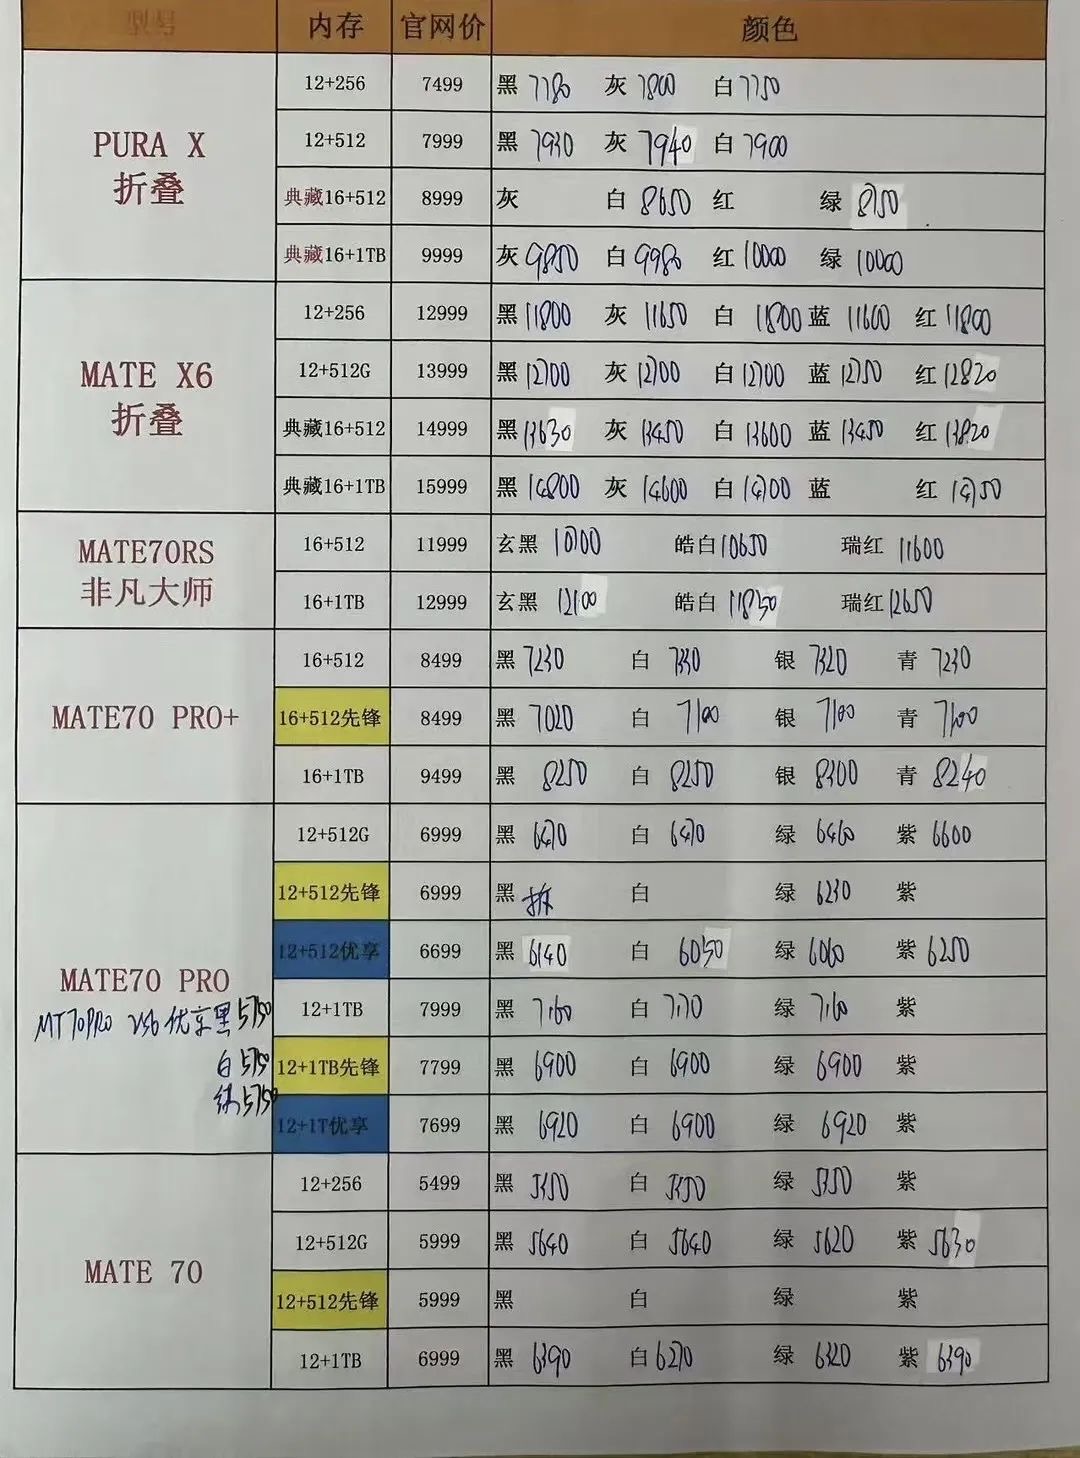 型号 内存 官网价 颜色
PURA X
折叠
12+256 7499 黑 7780 灰 7800 白 7750
12+512 7999 黑 7930 灰 7940 白 7900
典藏16+512 8999 灰 白 8650 红 绿 8750
典藏16+1TB 9999 灰 9850 白 9980 红 10000 绿 10000
MATE X6
折叠
12+256 12999 黑 11800 灰 11650 白 11800 蓝 11600 红 11800
12+512G 13999 黑 12700 灰 12700 白 12700 蓝 12750 红 12820
典藏16+512 14999 黑 13630 灰 13450 白 13600 蓝 13450 红 13820
典藏16+1TB 15999 黑 14800 灰 14600 白 14700 蓝 红 14750
MATE70RS
非凡大师
16+512 11999 玄黑 10700 皓白 10650 瑞红 11600
16+1TB 12999 玄黑 12100 皓白 11850 瑞红 12650
MATE70 PRO+
16+512 8499 黑 7230 白 7330 银 7320 青 7230
16+512先锋 8499 黑 7020 白 7100 银 7100 青 7100
16+1TB 9499 黑 8250 白 8250 银 8300 青 8240
MATE70 PRO
MT70PRO 256 优享黑 5750
白 5750
绿 5750
12+512G 6999 黑 6470 白 6470 绿 6460 紫 6600
12+512先锋 6999 黑 拆 白 绿 6230 紫
12+512优享 6699 黑 6140 白 6050 绿 6060 紫 6250
12+1TB 7999 黑 7160 白 7170 绿 7160 紫
12+1TB先锋 7799 黑 6900 白 6900 绿 6900 紫
12+1T优享 7699 黑 6920 白 6900 绿 6920 紫
MATE 70
12+256 5499 黑 白 绿 紫
12+512G 5999 黑 5640 白 5640 绿 5620 紫 5630
12+512先锋 5999 黑 白 绿 紫
12+1TB 6999 黑 6390 白 6270 绿 6320 紫 6390